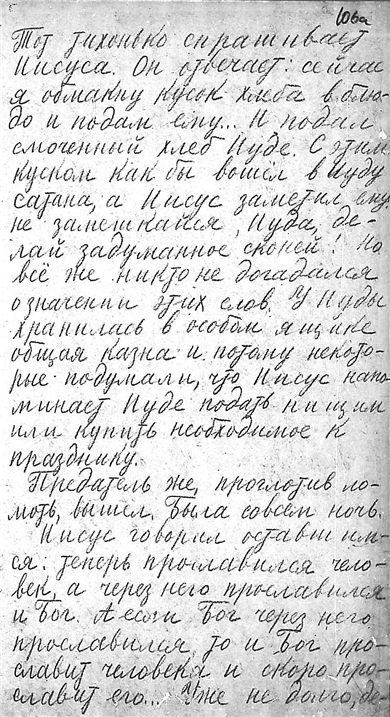 106а
Тот тихонько спрашивает
Иисуса. Он отвечает: сейчас
я обмакну кусок хлеба в блю-
до и подам ему... И подал
смоченный хлеб Иуде. С этим
куском как бы вошёл в Иуду
сатана, а Иисус заметил ему:
не замешкайся, Иуда, де-
лай задуманное скорей! Но
всё же никто не догадался
о значении этих слов. У Иуды
хранилась в особом ящике
общая казна и потому некото-
рые подумали, что Иисус напо-
минает Иуде подать нищим
или купить необходимое к
празднику.
Предатель же, проглотив ло-
моть, вышел. Была совсем ночь.
Иисус говорил оставшим-
ся: теперь прославился чело-
век, а через него прославился
и Бог. А если Бог через него
прославился, то и Бог про-
славит человека и скоро про-
славит его... Уже не долго, де-